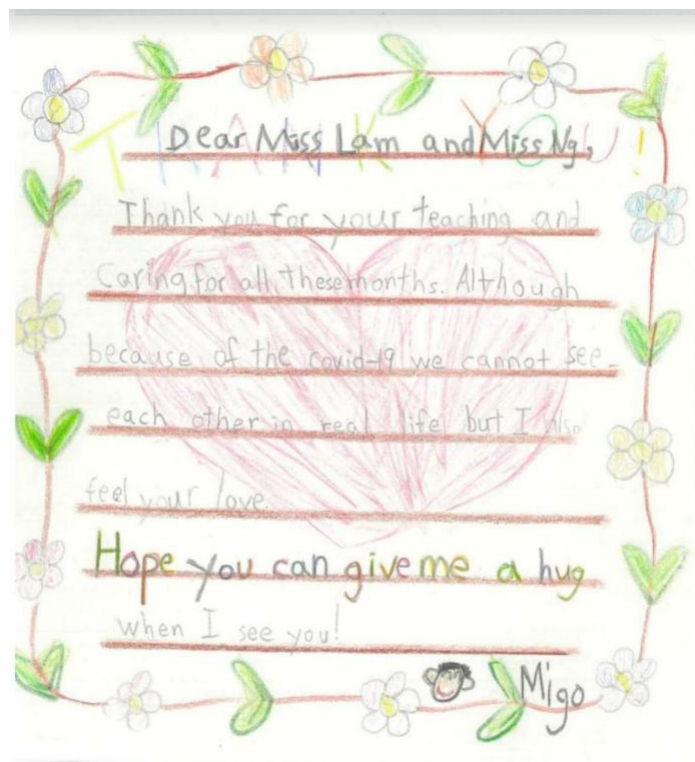 THANK YOU!
Dear Miss Lam and Miss Ng,
Thank you for your teaching and
Caring for all these months. Although
because of the covid-19 we cannot see
each other in real life but I also
feel your love.
Hope you can give me a hug
when I see you!
Migo